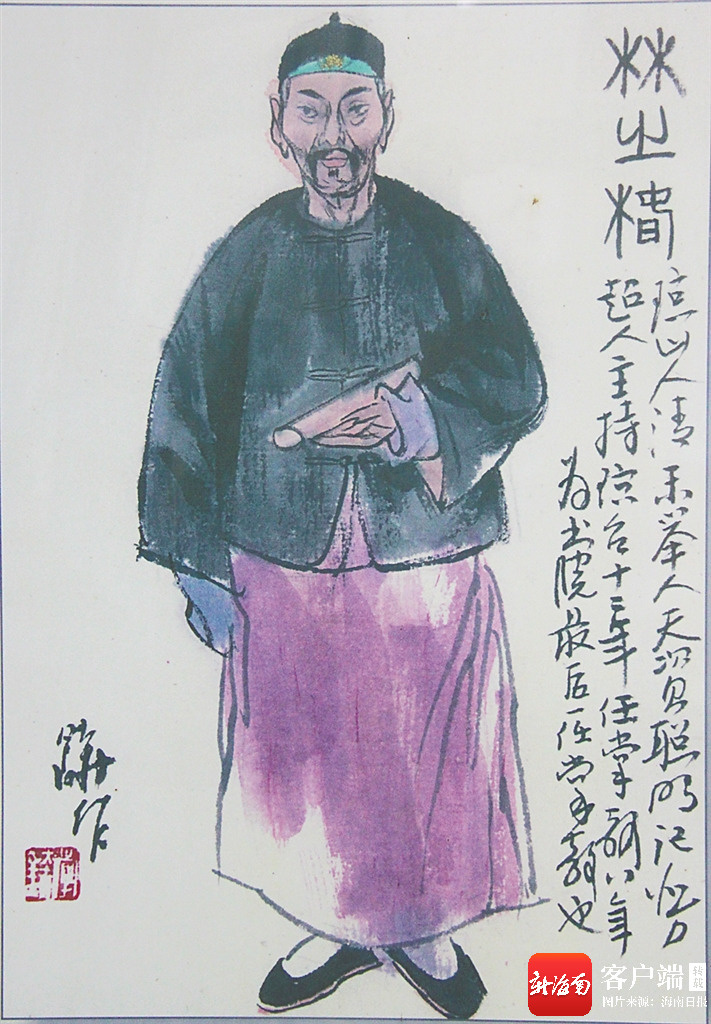 林之椿
琼山人清末举人天资聪明记忆力
超人主持琼台十三年任掌教八年
为书院最后一任掌教也
作
新海南 客户端 转载
图片来源：海南日报